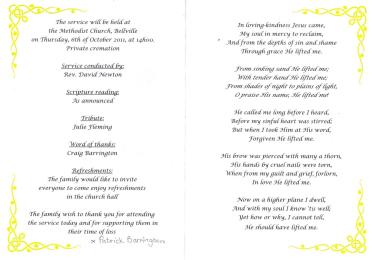 The service will be held at
the Methodist Church, Bellville
on Thursday, 6th of October 2011, at 14h00.
Private cremation
Service conducted by:
Rev. David Newton
Scripture reading:
As announced
Tribute:
Julie Fleming
Word of thanks:
Craig Barrington
Refreshments:
The family would like to invite
everyone to come enjoy refreshments
in the church hall
The family wish to thank you for attending
the service today and for supporting them in
their time of loss
x Patrick Barrington
In loving-kindness Jesus came,
My soul in mercy to reclaim,
And from the depths of sin and shame
Through grace He lifted me.
From sinking sand He lifted me;
With tender hand He lifted me;
From shades of night to plains of light,
O praise His name, He lifted me!
He called me long before I heard,
Before my sinful heart was stirred;
But when I took Him at His word,
Forgiven He lifted me.
His brow was pierced with many a thorn,
His hands by cruel nails were torn,
When from my guilt and grief, forlorn,
In love He lifted me.
Now on a higher plane I dwell,
And with my soul I know 'tis well;
Yet how or why, I cannot tell,
He should have lifted me.